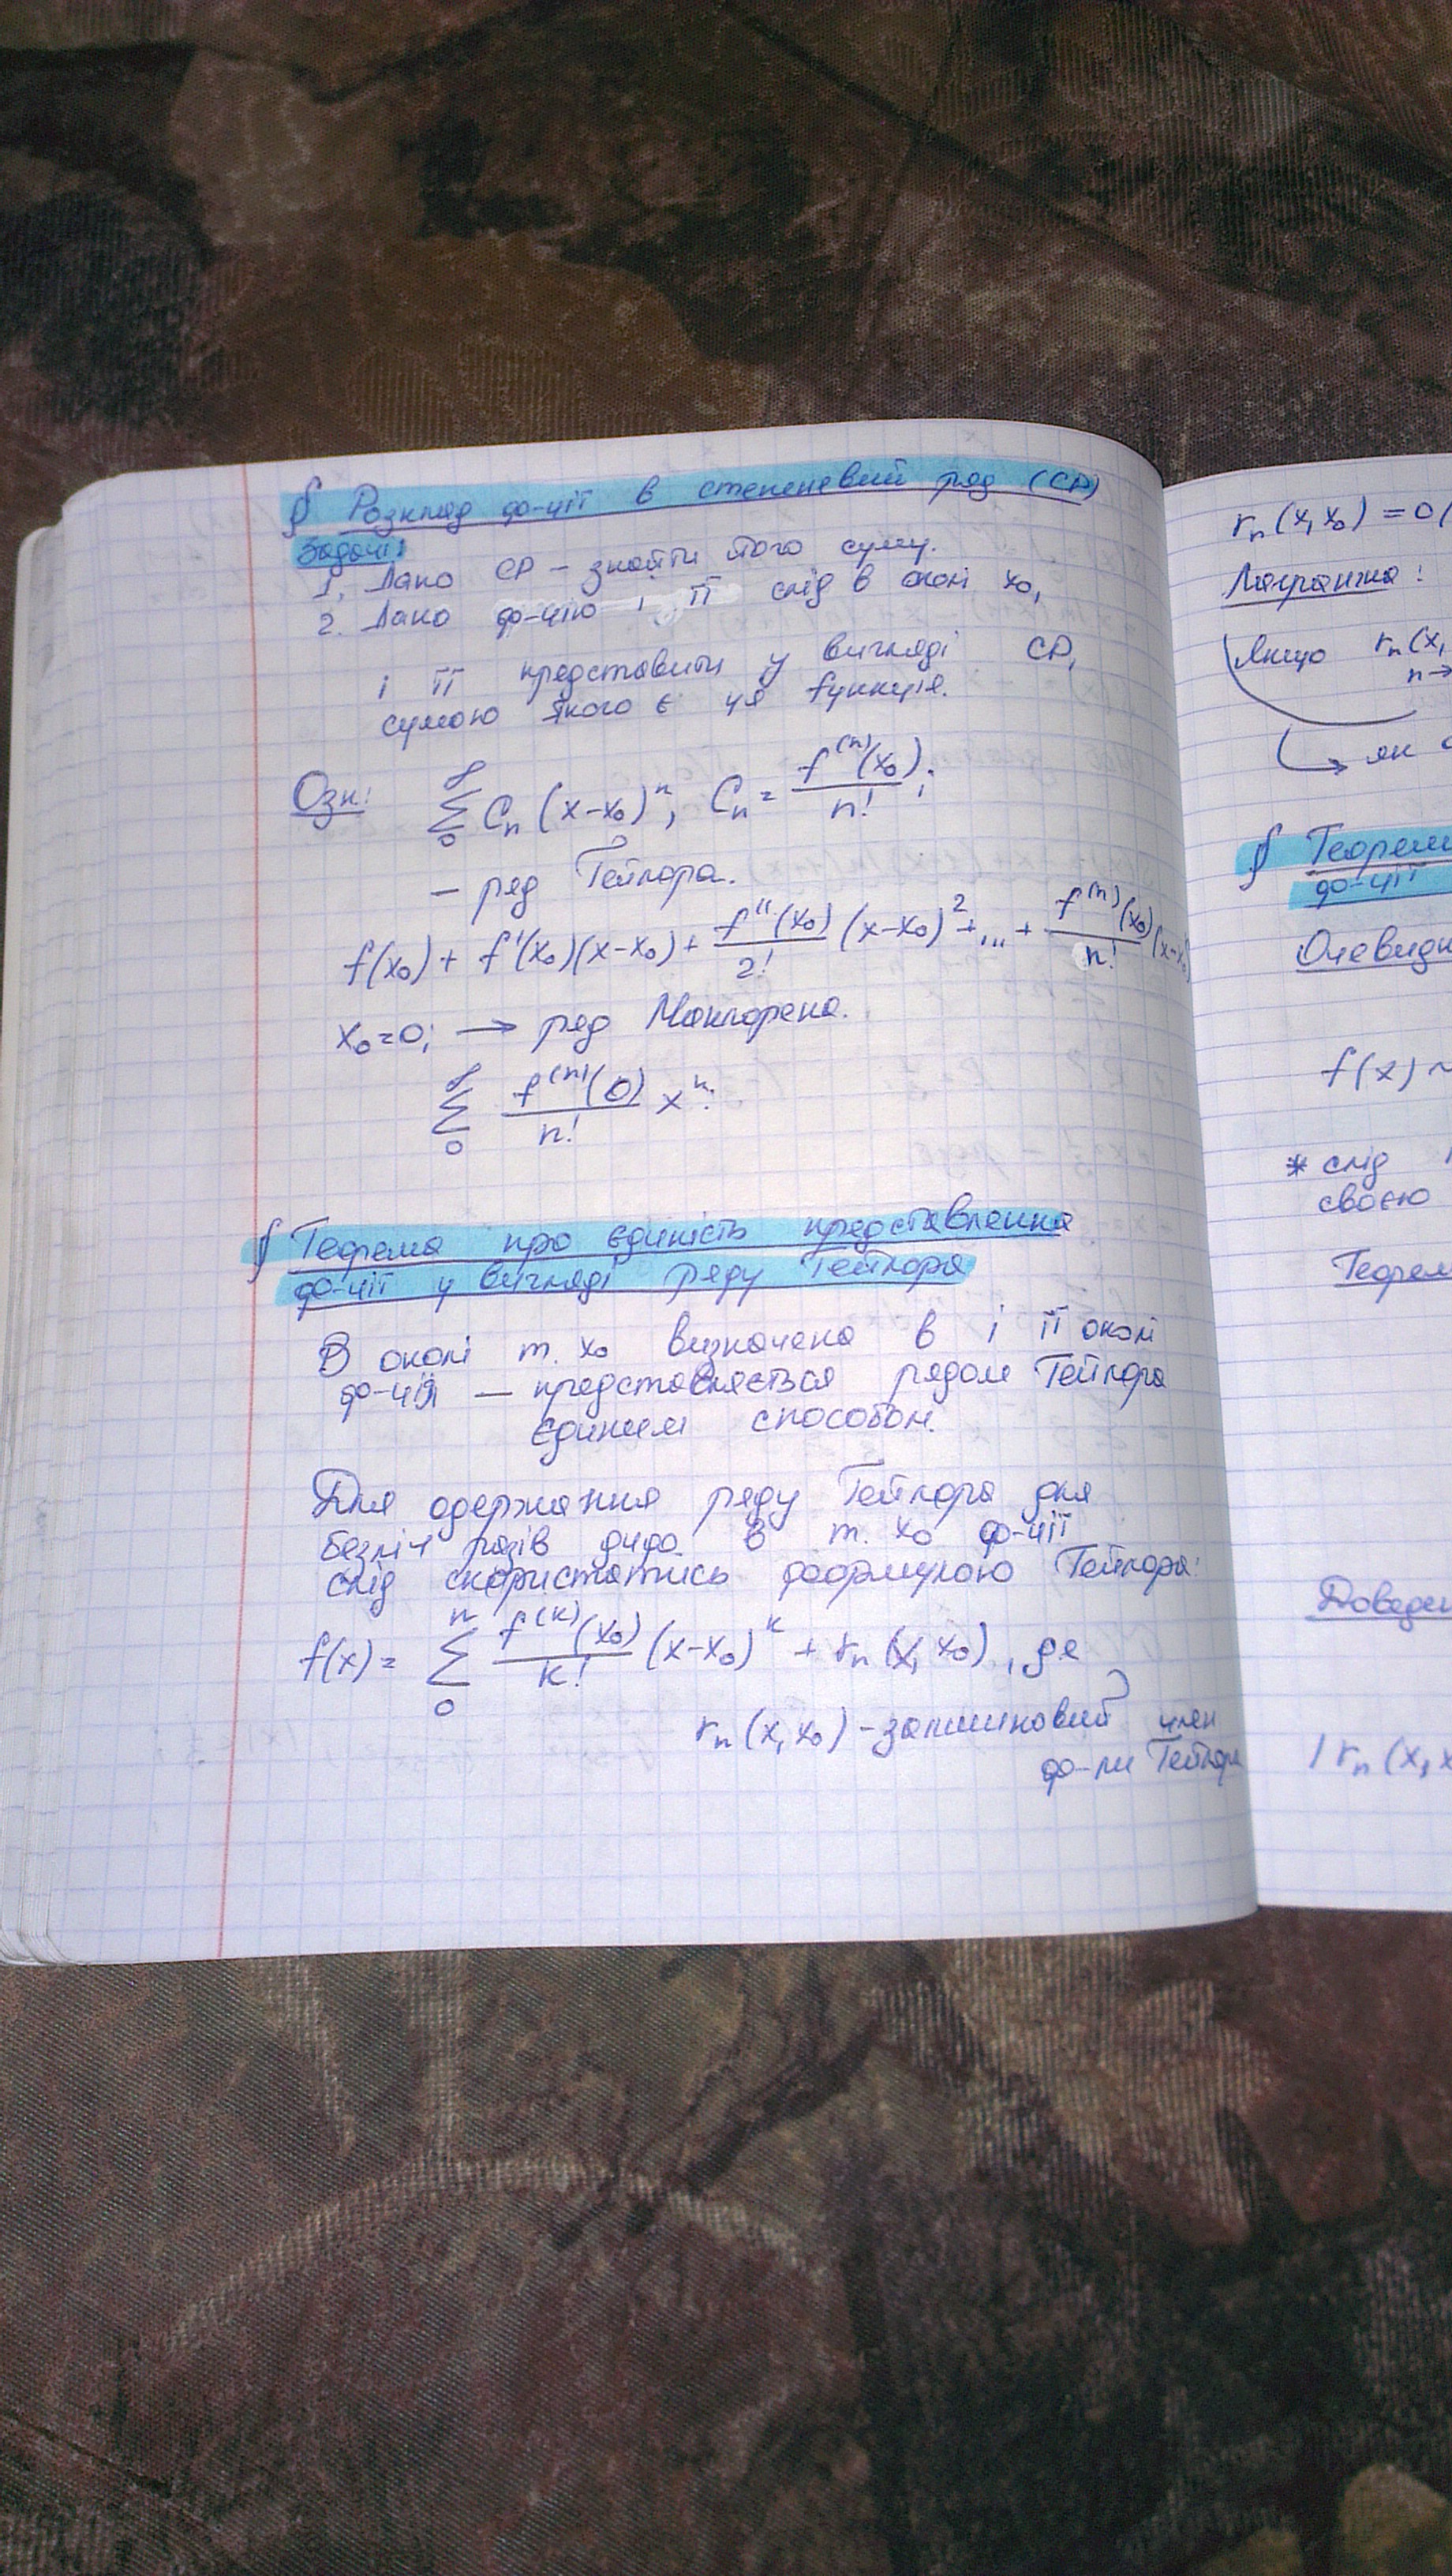 § Розклад ф-ції в степеневий ряд (СР)
Задачі:
1. Дано СР – знайти його суму.
2. Дано ф-цію і її слід в околі x₀,
і її представити у вигляді СР,
сумою якого є ця функція.
Озн: ∑₀^∞ Cₙ(x-x₀)ⁿ, Cₙ = f⁽ⁿ⁾(x₀)/n!;
– ряд Тейлора.
f(x₀) + f'(x₀)(x-x₀) + f''(x₀)/2! (x-x₀)² + ... + f⁽ⁿ⁾(x₀)/n! (x-x₀)
x₀=0; → ряд Маклорена.
∑₀^∞ f⁽ⁿ⁾(0)/n! xⁿ.
§ Теорема про єдиність представлення
ф-ції у вигляді ряду Тейлора
В околі т. x₀ визначена в і її околі
ф-ція — представляється рядом Тейлора
єдиним способом.
Для одержання ряду Тейлора для
безліч разів диф. в т. x₀ ф-ції
слід скористатись формулою Тейлора:
f(x) = ∑₀ⁿ f⁽ᵏ⁾(x₀)/k! (x-x₀)ᵏ + rₙ(x, x₀), де
rₙ(x, x₀) - залишковий член
ф-ли Тейлора
rₙ(x, x₀) = 0(
Лагранжа:
Якщо rₙ(x,
n→
→ як
§ Теорем
ф-ції
Очевидн
f(x) ~
* слід
своєю
Теорем
Доведен
|rₙ(x, x